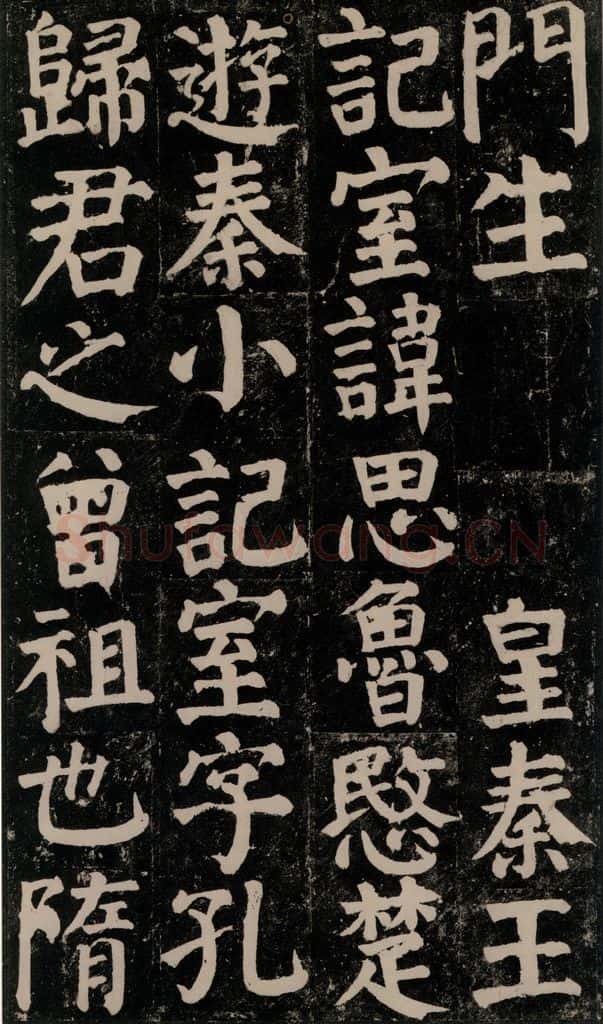 門生 皇秦王
記室諱思魯愍楚
遊秦小記室字孔
歸君之曾祖也隋
Shufawang.CN